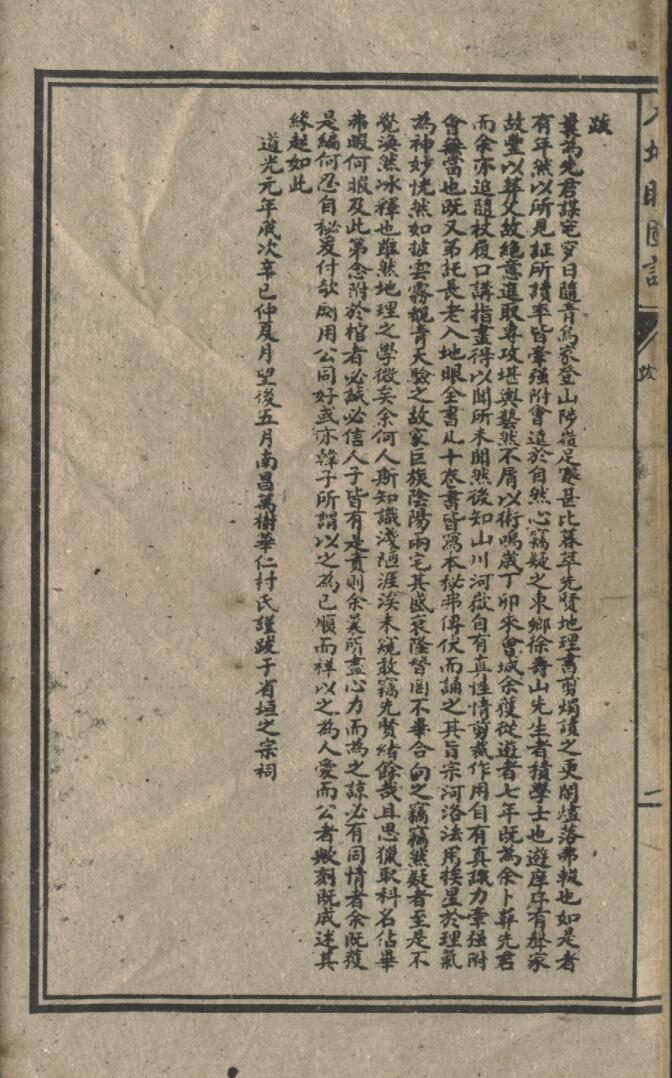 跋
曩為先君謀窀穸日隨青烏家登山陟嶺足蹇甚比暮萃先賢地理書剪燭讀之更闌燼落弗輟也如是者
有年然以所見証所讀率皆牽强附會遠於自然心竊疑之東鄉徐壽山先生者積學士也遊庠序有聲家
故豐以葬父故絶意進取專攻堪輿藝然不屑以術鳴歲丁卯來會城余獲從遊者七年既為余卜葬先君
而余亦追隨杖履口講指畫得以聞所未聞然後知山川河嶽自有真性情剪裁作用自有真識力牽强附
會無當也既又弟託長老入地眼全書凡十卷書皆寫本秘弗傳伏而誦之其旨宗河洛法用挨星於理氣
為神妙恍然如披雲霧覩青天驗之故家巨族陰陽兩宅其盛衰隆替罔不畢合向之竊竊然疑者至是不
覺渙然冰釋也雖然地理之學微矣余何人斯知識淺陋涯涘未窺敢竊先賢緒餘哉且思獵取科名佔畢
弗暇何暇及此第念附於棺者必誠必信人子皆有是責則余曩所盡心力而為之諒必有同情者余既獲
是編何忍自秘爰付欹劂用公同好或亦韓子所謂以之為已順而祥以之為人愛而公者歟刻既成述其
緣起如此
道光元年歲次辛巳仲夏月望後五月南昌萬樹華仁村氏謹跋于省垣之宗祠
地眼圖說
跋
一